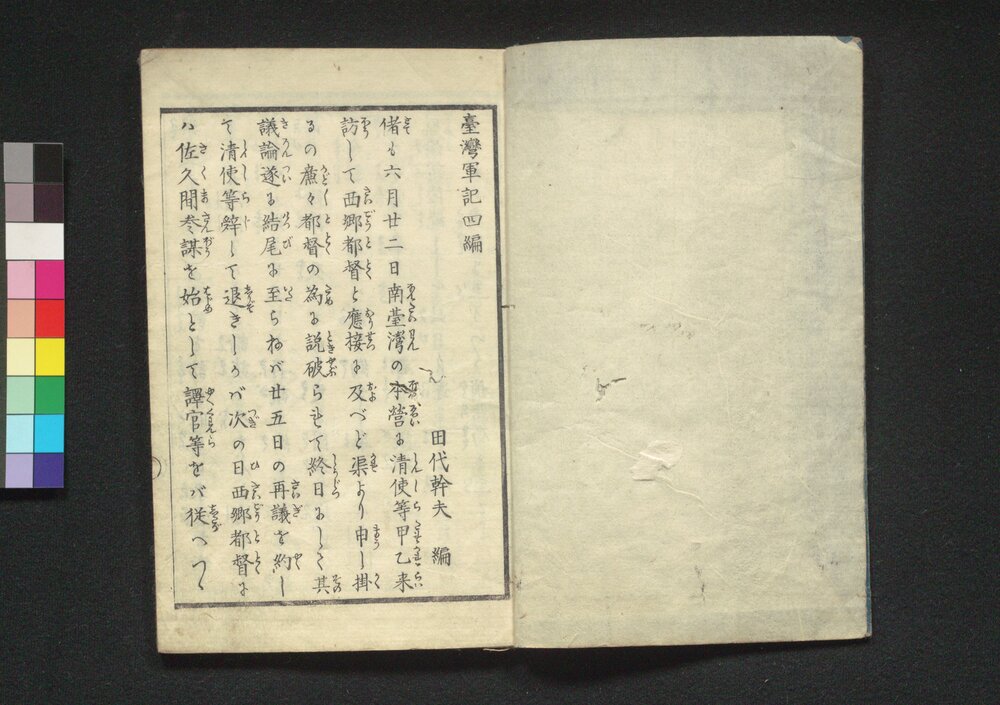 臺灣軍記四編
田代幹夫 編
偖も六月廿二日南臺灣の本營に清使等甲乙来
訪して西郷都督と應接に及べど渠より申し掛
るの廉々都督の為に説破られて終日にして其
議論遂に結尾に至らねバ廿五日の再議を約し
て清使等辞して退きしかバ次の日西郷都督に
ハ佐久間参謀を始として譯官等をバ従へつゝ